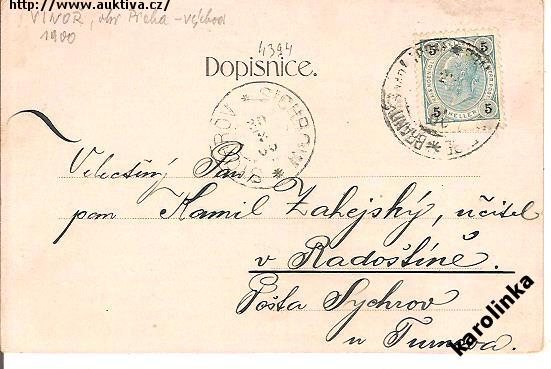 http://www.auktiva.cz/
VINOŘ, okr Praha-východ
1900
4394
Dopisnice.
5 5
5 5
SICHROW
SYCHROV
BRANDÝS
Velectěný Pan
pan Kamil Zahejský, učitel
v Radoštíně.
Pošta Sychrov
u Turnova.
karolinka